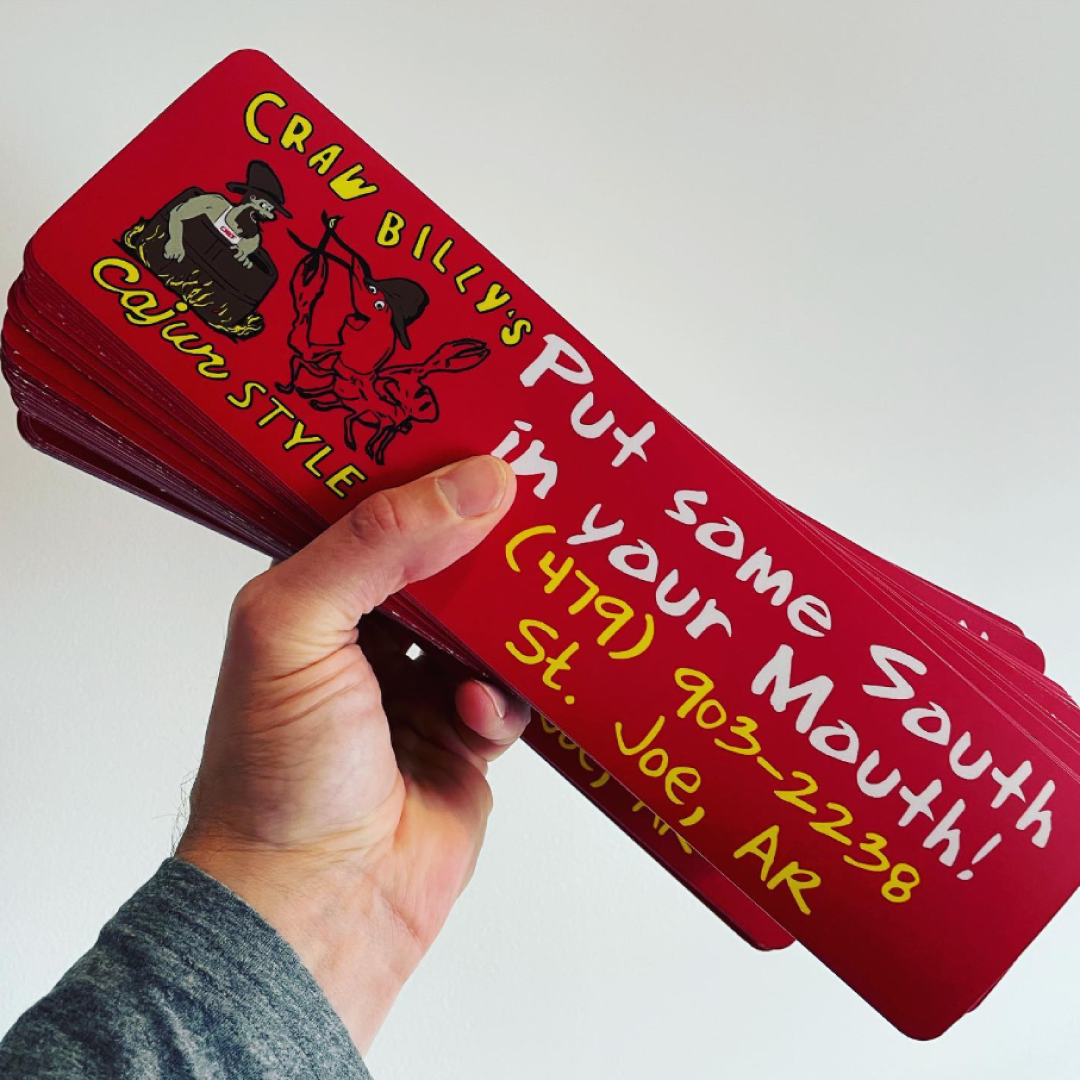 CRAW BILLY'S
CHEF
Cajun STYLE
Put some South
in your Mouth!
(479) 903-2238
St. Joe, AR